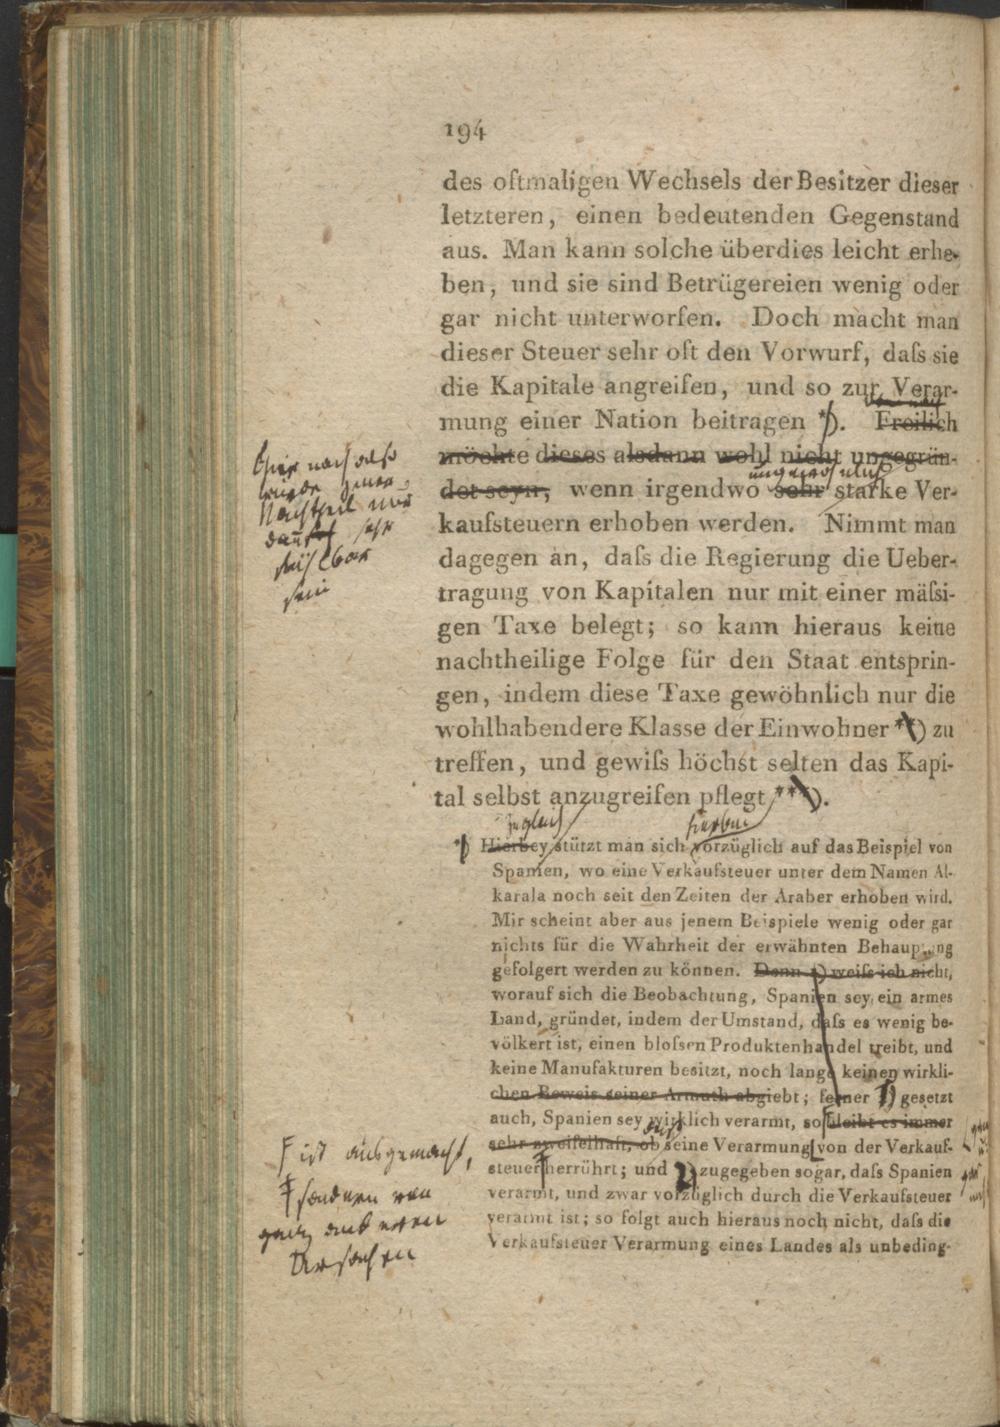 194
des oftmaligen Wechsels der Besitzer dieser
letzteren, einen bedeutenden Gegenstand
aus. Man kann solche überdies leicht erhe-
ben, und sie sind Betrügereien wenig oder
gar nicht unterworfen. Doch macht man
dieser Steuer sehr oft den Vorwurf, daſs sie
die Kapitale angreifen, und so zur Verar-
mung einer Nation beitragen *). Freilich
möchte dieses alsdann wohl nicht ungegrün-
ungewöhnlich
det seyn, wenn irgendwo sehr starke Ver-
kaufsteuern erhoben werden. Nimmt man
dagegen an, daſs die Regierung die Ueber-
tragung von Kapitalen nur mit einer mäſsi-
gen Taxe belegt; so kann hieraus keine
nachtheilige Folge für den Staat entsprin-
gen, indem diese Taxe gewöhnlich nur die
wohlhabendere Klasse der Einwohner **) zu
treffen, und gewiſs höchst selten das Kapi-
tal selbst anzugreifen pflegt ***).
zugleich hierbei
*) Hierbey stützt man sich vorzüglich auf das Beispiel von
Spanien, wo eine Verkaufsteuer unter dem Namen Al-
karala noch seit den Zeiten der Araber erhoben wird.
Mir scheint aber aus jenem Beispiele wenig oder gar
nichts für die Wahrheit der erwähnten Behauptung
gefolgert werden zu können. Denn 1) weiſs ich nicht,
worauf sich die Beobachtung, Spanien sey ein armes
Land, gründet, indem der Umstand, daſs es wenig be-
völkert ist, einen bloſsen Produktenhandel treibt, und
keine Manufakturen besitzt, noch lange keinen wirkli-
chen Beweis seiner Armuth abgiebt; ferner 2) gesetzt
auch, Spanien sey wirklich verarmt, so bleibt es immer
sehr zweifelhaft, ob seine Verarmung von der Verkauf-
steuer herrührt; und 3) zugegeben sogar, daſs Spanien
verarmt, und zwar vorzüglich durch die Verkaufsteuer
verarmt ist; so folgt auch hieraus noch nicht, daſs die
Verkaufsteuer Verarmung eines Landes als unbeding-
nach
würde
Nachtheil nur
dann sehr
fühlbar
sein
ist ausgemacht,
sondern von
ganz anderen
Ursachen